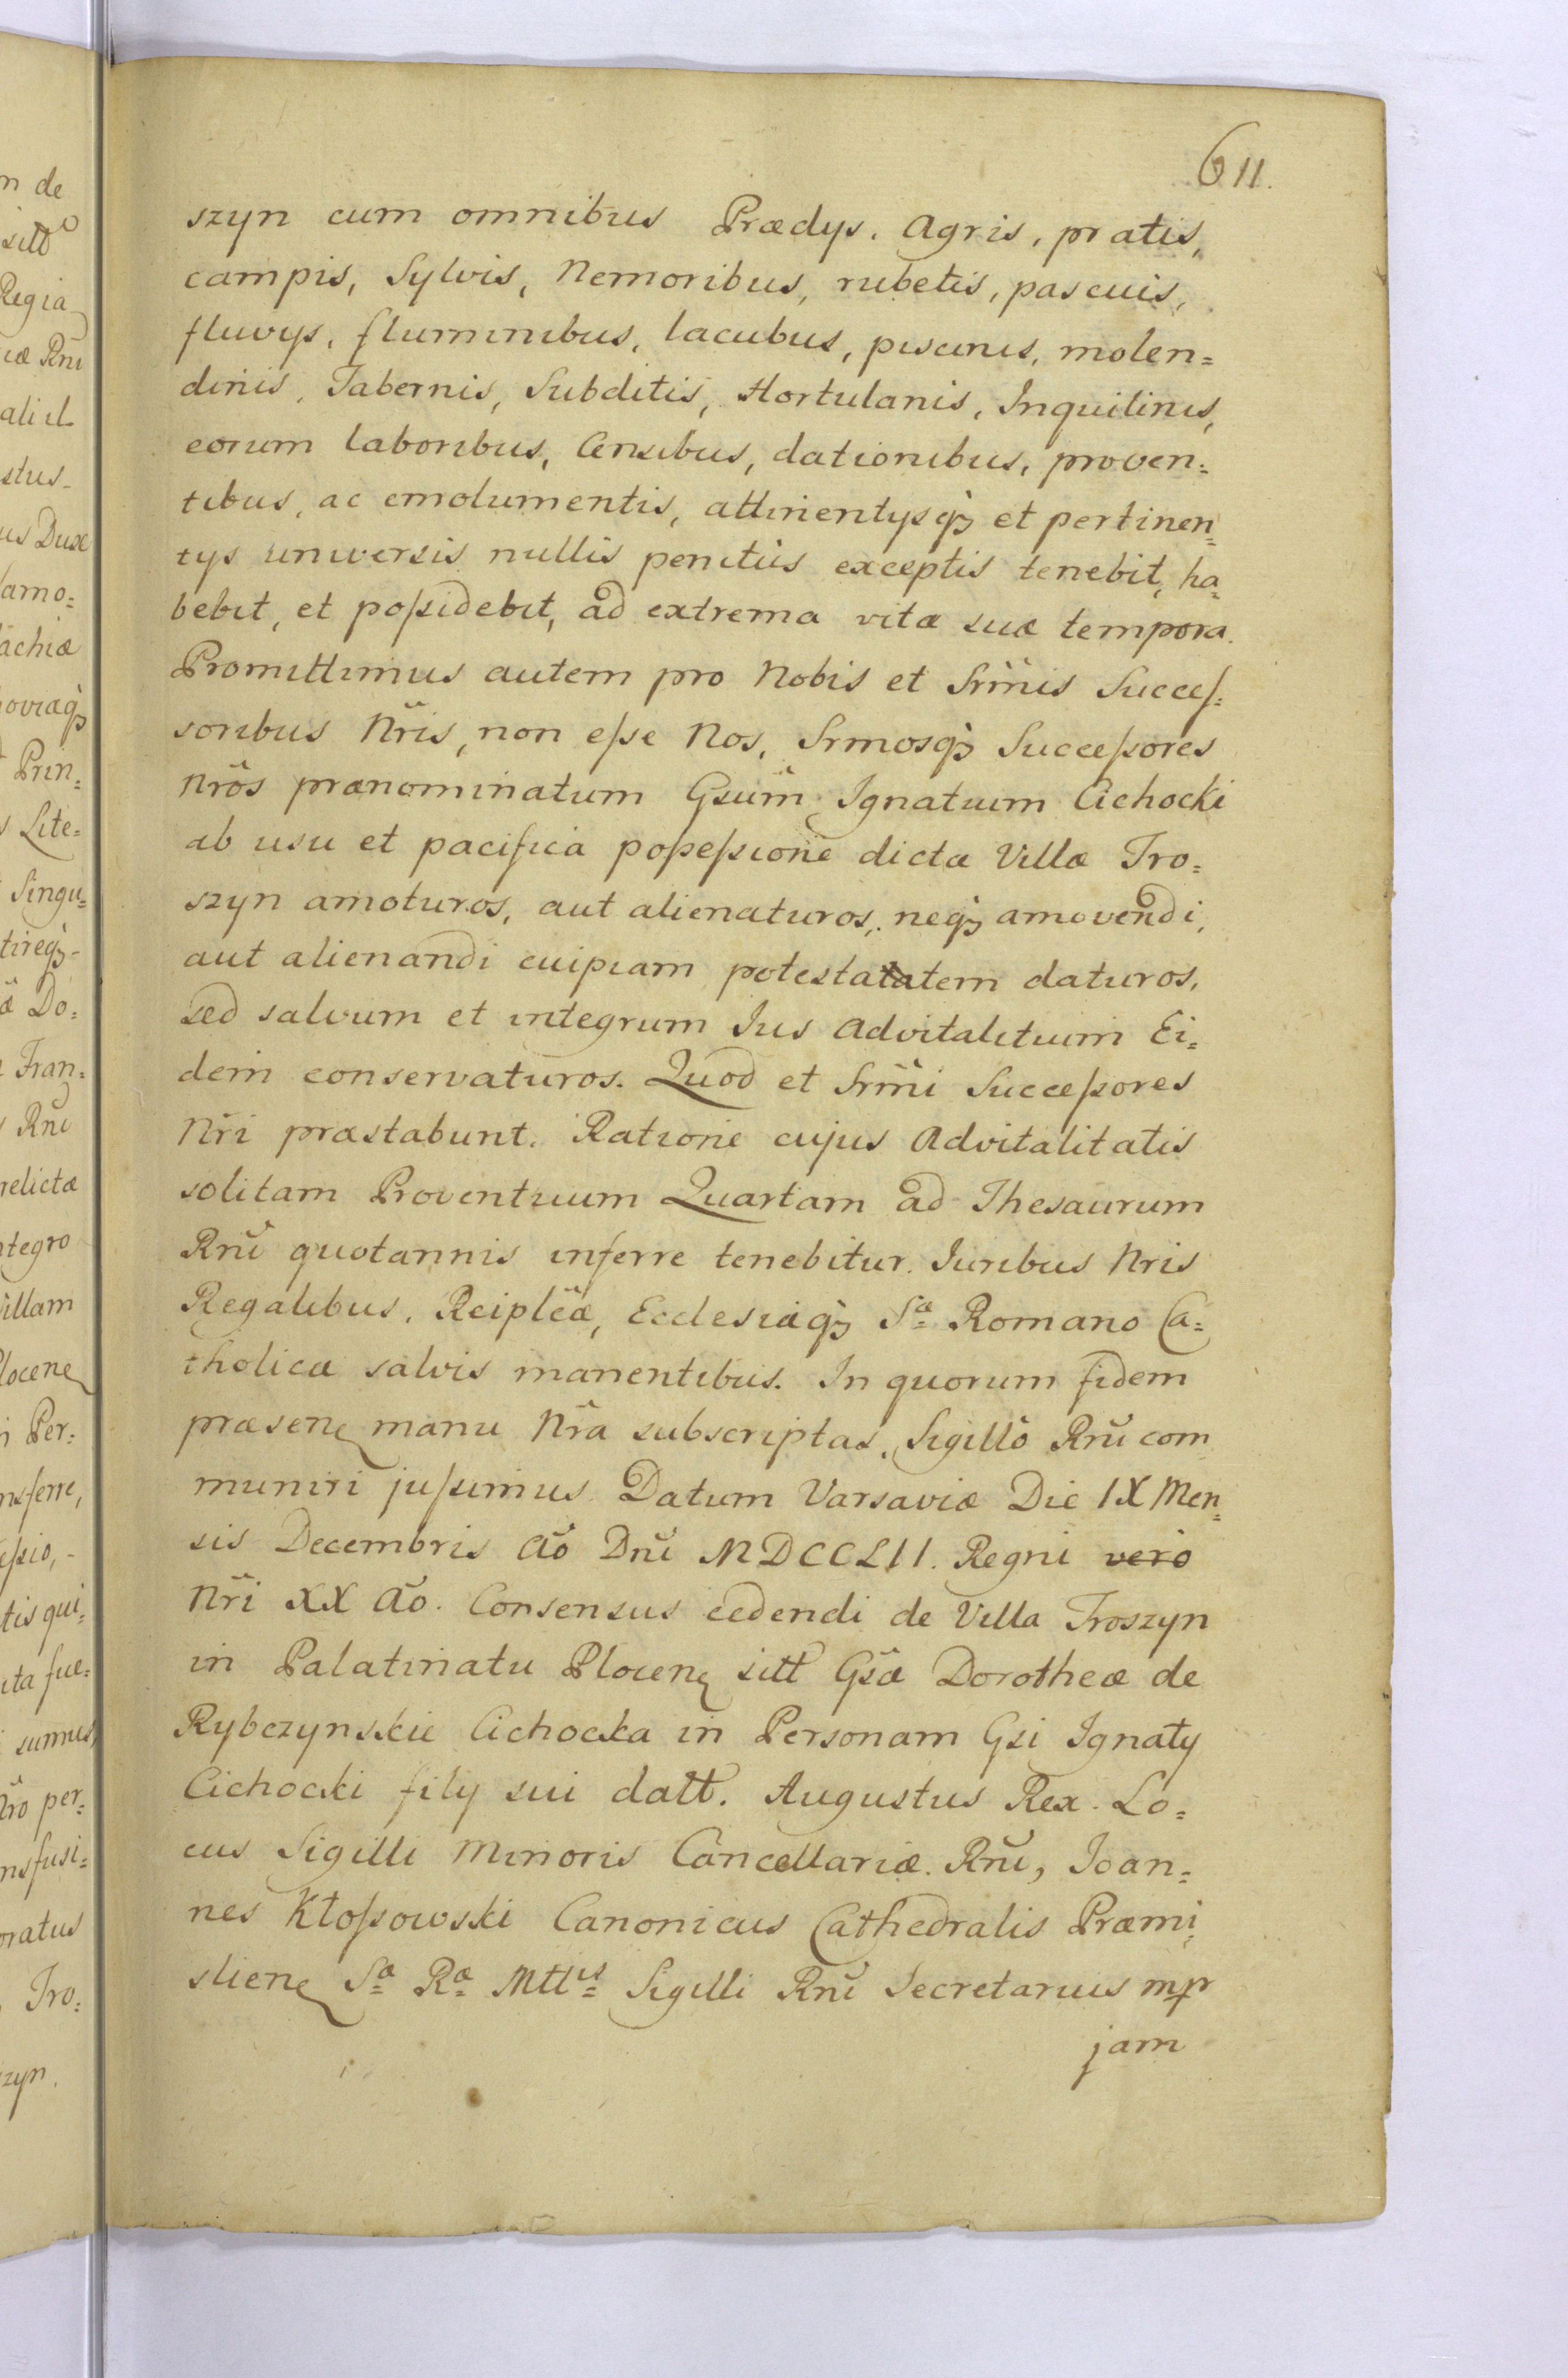 611.
szyn cum omnibus Prædys, Agris, pratis,
campis, Sylvis, Nemoribus, rubetis, pascuis,
fluvys, fluminibus, lacubus, piscinis, molen=
dinis, Tabernis, Subditis, Hortulanis, Inquilinis,
eorum laboribus, Censibus, dationibus, proven=
tibus, ac emolumentis, attinentysqꝫ et pertinen=
tys universis nullis penitus exceptis tenebit, ha=
bebit, et poſsidebit, ad extrema vitæ suæ tempora.
Promittimus autem pro Nobis et Srm̃is Succeſ=
soribus Nr̃is, non eſse Nos, Srmosqꝫ Succeſsores
Nr̃os prænominatum Gsum̃ Ignatium Cichocki
ab usu et pacifica poſseſsione dictæ Villæ Tro=
szyn amoturos, aut alienaturos, neqꝫ amovendi,
aut alienandi cuipiam potestatatem daturos,
sed salvum et integrum Jus Advitalitium Ei=
dem conservaturos. Quod et Srm̃i Succeſsores
Nr̃i præstabunt. Ratione cujus Advitalitatis
solitam Proventuum Quartam ad Thesaurum
Rnĩ quotannis inferre tenebitur. Juribus Nris
Regalibus, Reiplĩcæ, Ecclesiæqꝫ Sæ Romano Ca=
tholicæ salvis manentibus. In quorum fidem
præsenꝫ manu Nr̃a subscriptas, Sigillo Rnĩ com
muniri juſsimus. Datum Varsaviæ Die IX Men=
sis Decembris Ão Dnĩ MDCCLII. Regni vero
Nr̃i XX Ão. Consensus cedendi de Villa Troszyn
in Palatinatu Plocenꝫ sitt Gsæ Dorotheæ de
Rybczynskie Cichocka in Personam Gsi Ignaty
Cichocki fily sui datt. Augustus Rex. Lo=
cus Sigilli Minoris Cancellariæ Rnĩ, Joan=
nes Kłoſsowski Canonicus Cathedralis Præmi=
slienꝫ Sæ Ræ Mttis Sigilli Rnĩ Secretarius mpr
jam